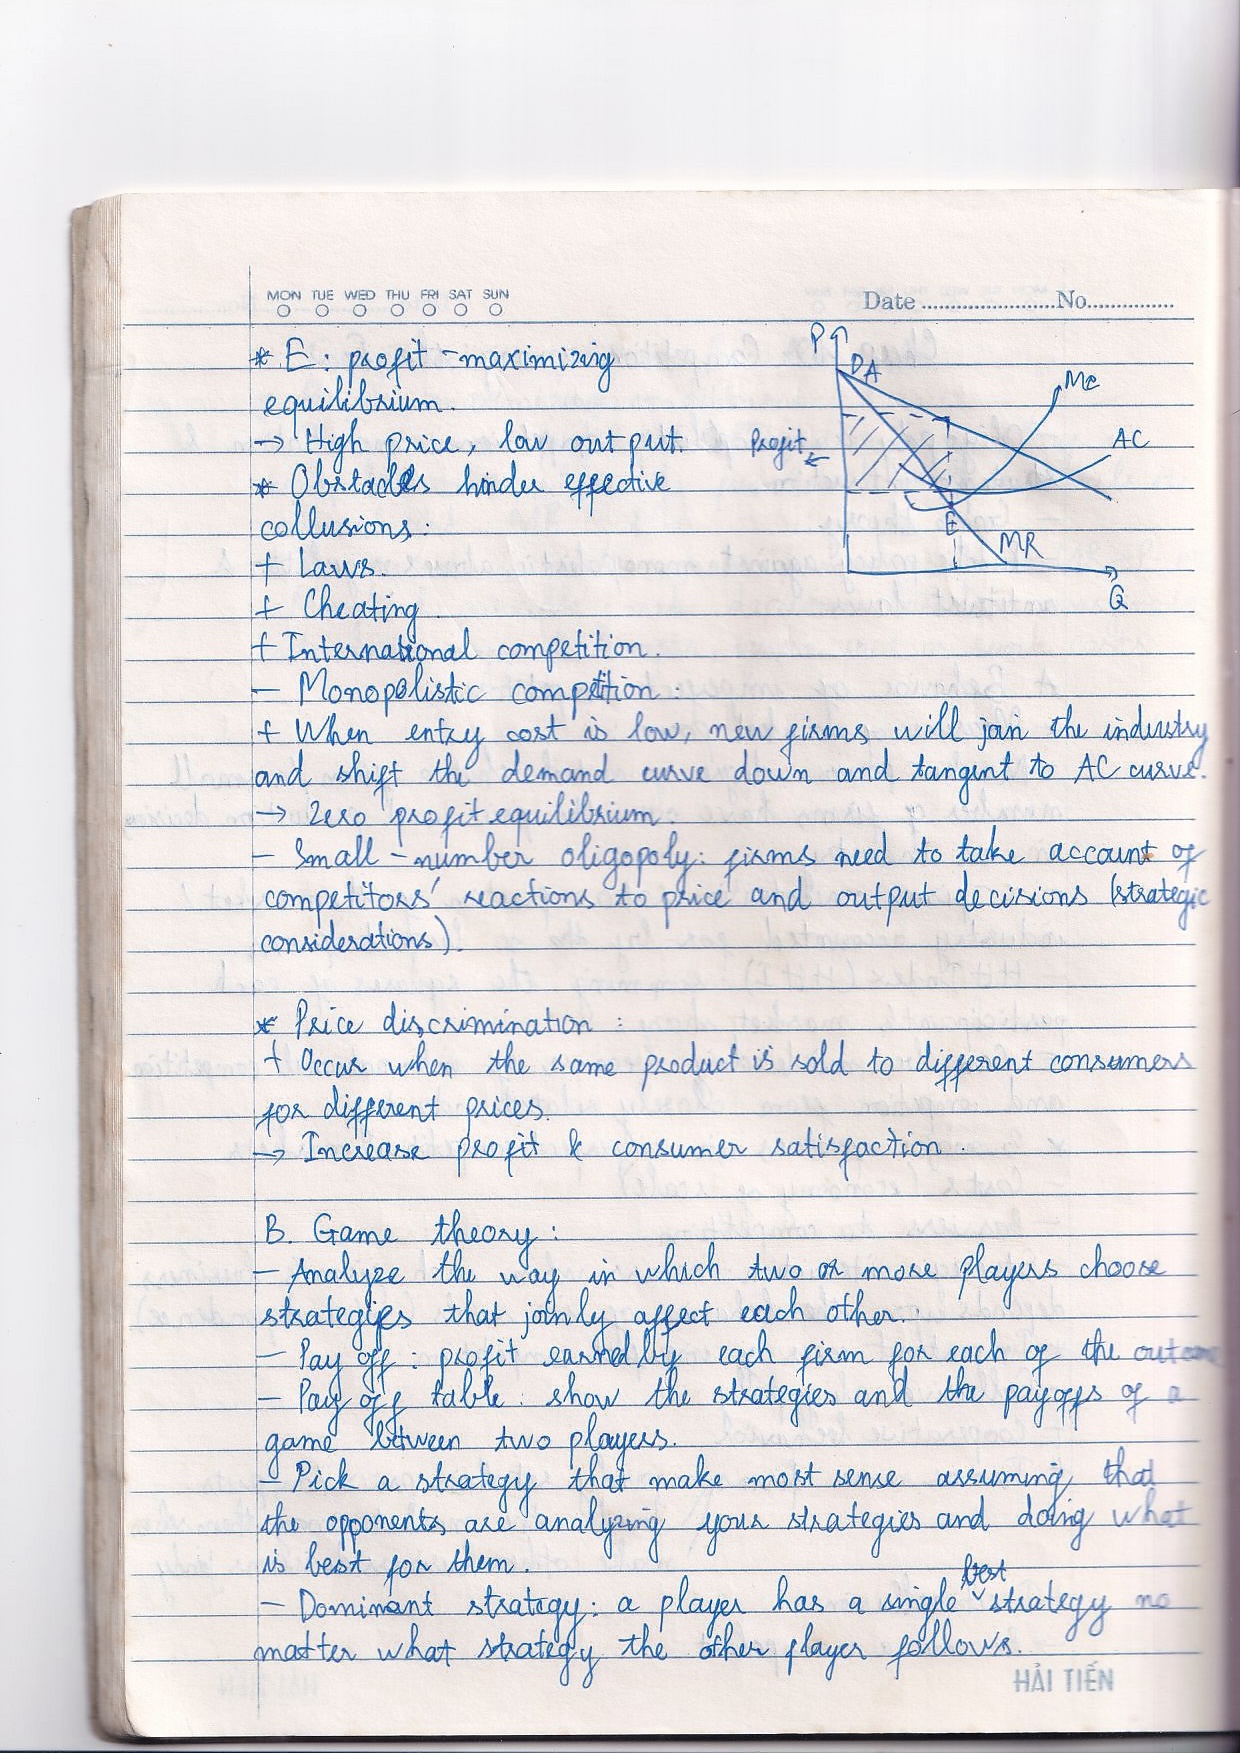 MON TUE WED THU FRI SAT SUN
Date ........................No...............
* E: profit-maximizing
equilibrium.
→ High price, low output.
* Obstacles hinder effective
collusions:
+ Laws.
+ Cheating.
+ International competition.
P
DA
MC
AC
Profit
E
MR
Q
- Monopolistic competition:
+ When entry cost is low, new firms will join the industry
and shift the demand curve down and tangent to AC curve.
→ Zero profit equilibrium.
- Small-number oligopoly: firms need to take account of
competitors' reactions to price and output decisions (strategic
considerations).
* Price discrimination:
+ Occur when the same product is sold to different consumers
for different prices.
→ Increase profit & consumer satisfaction.
B. Game theory:
- Analyze the way in which two or more players choose
strategies that joinly affect each other.
- Pay off: profit earned by each firm for each of the
- Pay off table: show the strategies and the payoffs of a
game between two players.
- Pick a strategy that make most sense assuming that
the opponents are analyzing your strategies and doing what
is best for them.
- Dominant strategy: a player has a single best strategy no
matter what strategy the other player follows.
HẢI TIẾN